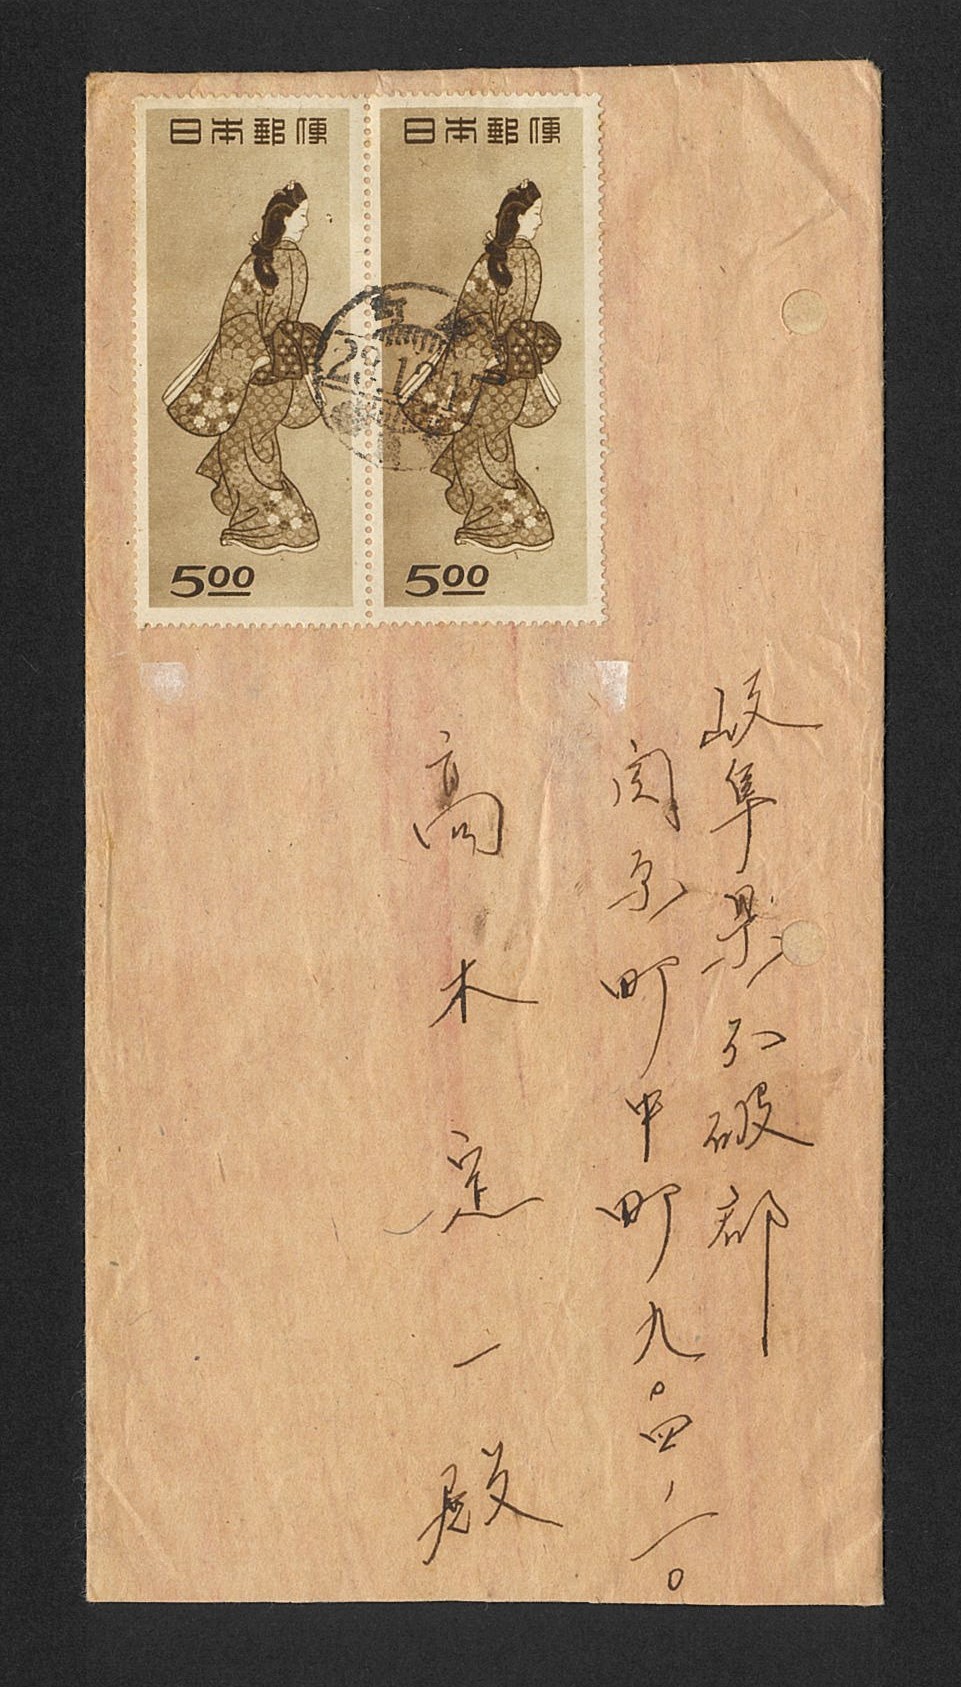 日本郵便
日本郵便
5.00
5.00
岐阜県不破郡
関原町中町九〇四ノ一〇
高木定一殿